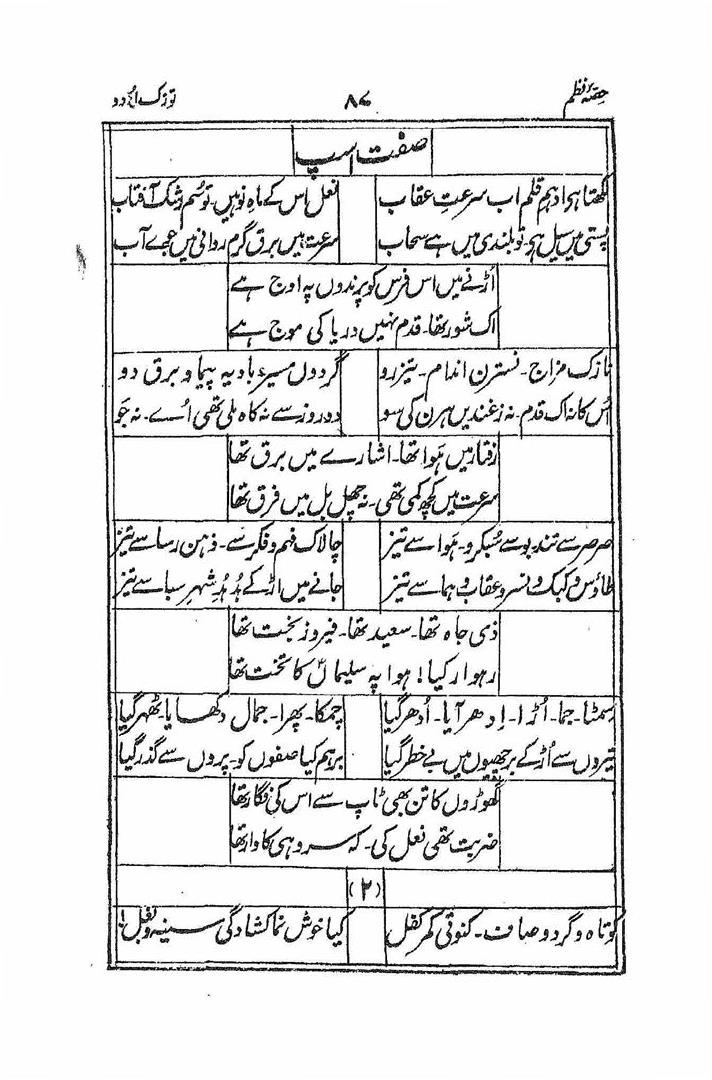 حصۂ نظم ۸۷ توزک اردو
صفت اسپ
لکھتا ہر ادہم قلم اب سرعت عقاب نعل اس کے ماہ نو ہیں۔ تو سُم رشک آفتاب
پستی میں سیل ہر۔ تو بلندی میں ہے سحاب سرعت میں برق گرم روانی میں موجۂ آب
اُڑنے میں اس فرس کو پرندوں پہ اوج ہے
اک شور تھا۔ قدم نہیں دریا کی موج ہے
نازک مزاج۔ نسترن اندام۔ تیزرو گردوں مسیر، بادیہ پیما و برق دو
اُس کا نہ اک قدم۔ نہ زغندیں ہرن کی سو دو روز سے نہ کاہ ملی تھی اُسے۔ نہ جَو
رفتار میں ہَوا تھا۔ اشارے میں برق تھا
سرعت میں کچھ کمی تھی۔ نہ چھل بل میں فرق تھا
صرصر سے تند۔ بو سے سُبکرو۔ ہَوا سے تیز چالاک فہم و فکر سے۔ ذہن رسا سے تیز
طاؤس و کبک و نسر و عقاب و ہما سے تیز جانے میں اڑ کے ہُدہُدِ شہر سبا سے تیز
ذی جاہ تھا۔ سعید تھا۔ فیروز بخت تھا
رہوار کیا! ہوا پہ سلیماںؑ کا تخت تھا
سمٹا۔ جما۔ اُڑا۔ اِدھر آیا۔ اُدھر گیا چمکا۔ پھرا۔ جمال دکھایا۔ ٹھہر گیا
تیروں سے اُڑ کے برچھیوں میں بے خطر گیا برہم کیا صفوں کو۔ پروں سے گذر گیا
گھوڑوں کا تن بھی ٹاپ سے اس کی فگار تھا
ضربت تھی نعل کی۔ کہ سروہی کا وار تھا
(۲)
کوتاہ و گرد و صاف۔ کنوتی کمر کفل کیا خوش نما کشادگی سینہ و بغل!